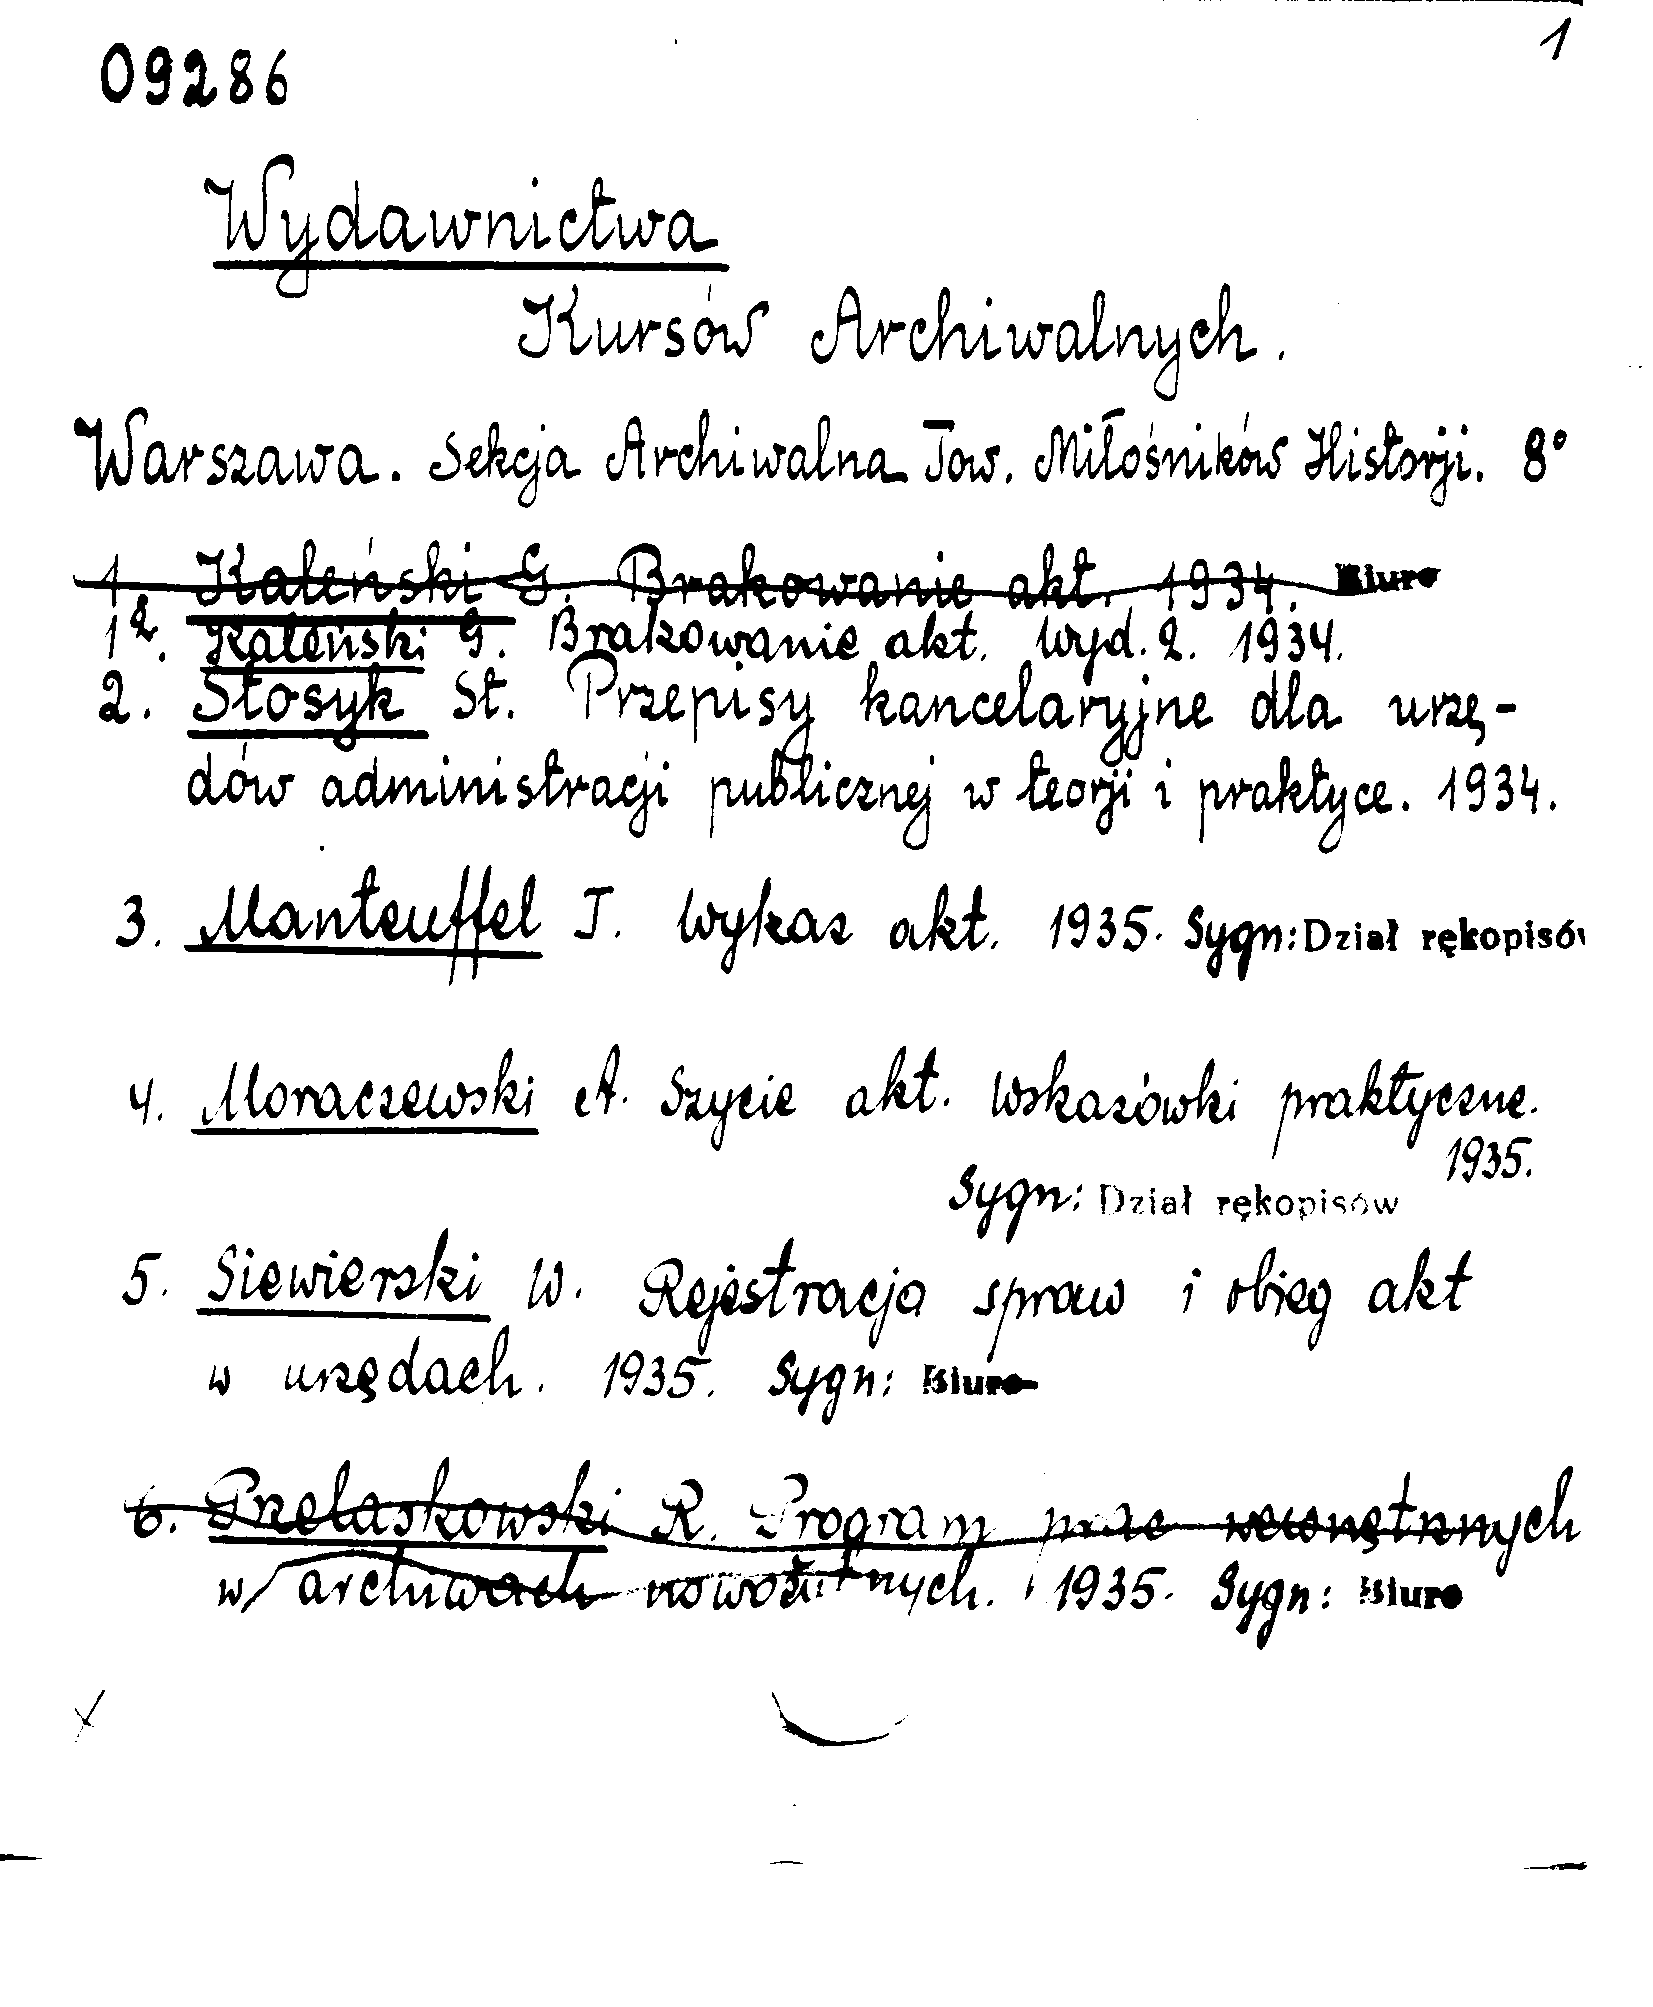 1
09286
Wydawnictwa
Kursów Archiwalnych.
Warszawa. Sekcja Archiwalna Tow. Miłośników Historji. 8°
1. Kaleński G. Brakowanie akt. 1934. Biuro
1². Kaleński G. Brakowanie akt. Wyd. 2. 1934.
2. Stosyk St. Przepisy kancelaryjne dla urzę-
dów administracji publicznej w teorji i praktyce. 1934.
3. Manteuffel T. Wykaz akt. 1935. Sygn: Dział rękopisów
4. Moraczewski A. Szycie akt. Wskazówki praktyczne.
1935.
Sygn: Dział rękopisów
5. Siewierski W. Rejestracja spraw i obieg akt
w urzędach. 1935. Sygn: Biuro
6. Przelaskowski R. Program prac wewnętrznych
w archiwach nowożytnych. 1935. Sygn: Biuro